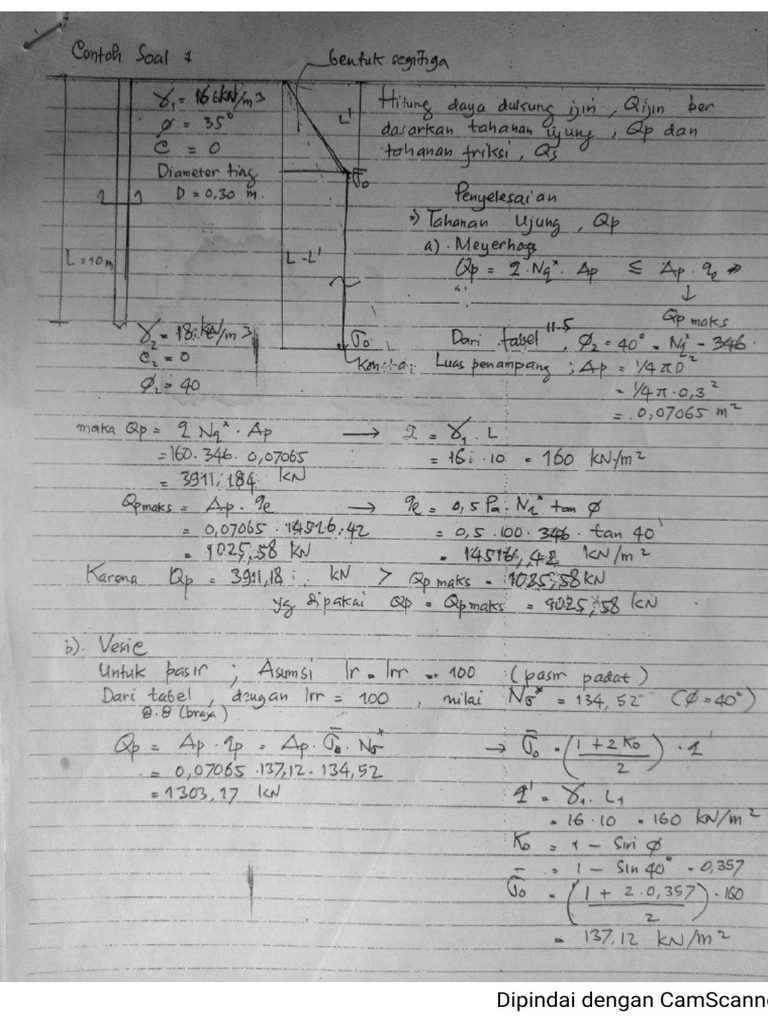 Contoh Soal 1
bentuk segitiga
γ1 = 16 kN/m3
φ = 35°
C = 0
Diameter tiang
D = 0,30 m.
L = 10 m
L'
σ̄o
L - L'
σ̄o
Konstan
γ2 = 18 kN/m3
C2 = 0
φ2 = 40
Hitung daya dukung ijin, Qijin ber
dasarkan tahanan ujung, Qp dan
tahanan friksi, Qs
Penyelesaian
⇒ Tahanan Ujung, Qp
a). Meyerhog
Qp = q · Nq* · Ap ≤ Ap · qe →
↓
Qp maks
Dari tabel 11-5, φ2 = 40° - Nq* - 346
Luas penampang ; Ap = 1/4 π D²
= 1/4 π · 0,3²
= 0,07065 m²
maka Qp = q Nq* · Ap → q = γ1 · L
= 160 · 346 · 0,07065 = 16 · 10 = 160 kN/m²
= 3911,184 kN
Qpmaks = Ap · qe → qe = 0,5 Pa · Nq* tan φ
= 0,07065 · 14516,42 = 0,5 · 100 · 346 · tan 40
= 1025,58 kN = 14516,42 kN/m²
Karena Qp = 3911,18 kN > Qp maks = 1025,58 kN
yg dipakai Qp = Qpmaks = 1025,58 kN
b). Vesic
Untuk pasir ; Asumsi Ir = Irr = 100 (pasir padat)
Dari tabel, dengan Irr = 100, nilai Nσ* = 134,52 (φ=40°)
(braja)
Qp = Ap · qp = Ap · σ̄o · Nσ* → σ̄o = (1 + 2 Ko / 2) · q'
= 0,07065 · 137,12 · 134,52
= 1303,17 kN
q' = γ1 · L1
= 16 · 10 = 160 kN/m²
Ko = 1 - Sin φ
= 1 - Sin 40° = 0,357
σ̄o = (1 + 2 · 0,357 / 2) · 160
= 137,12 kN/m²
Dipindai dengan CamScanne